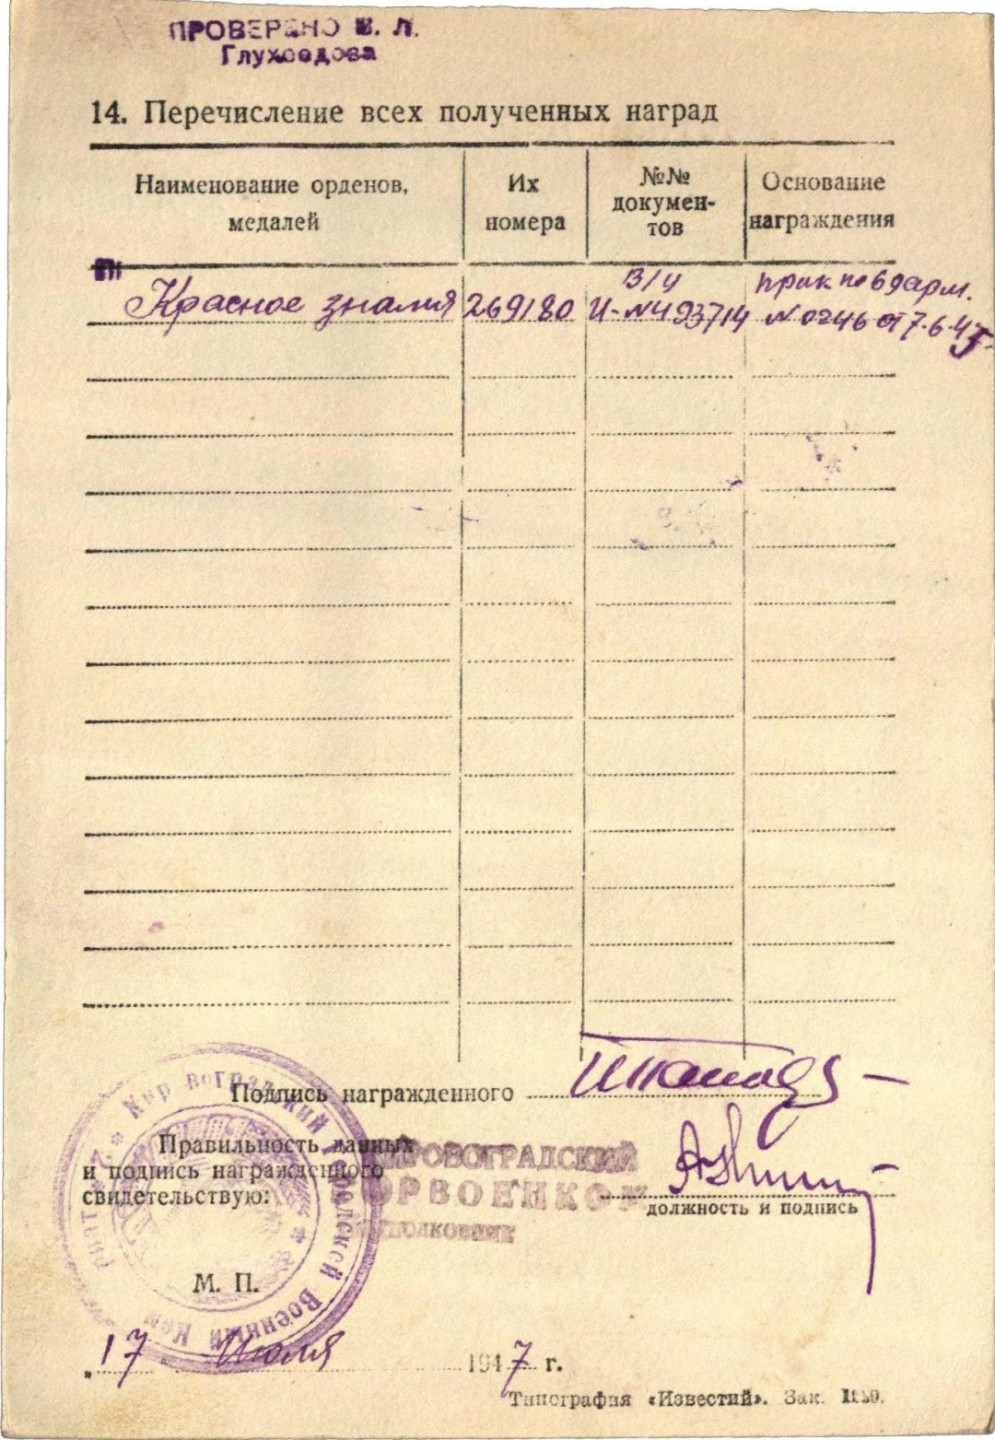 ПРОВЕРЕНО
Глухоедова
14. Перечисление всех полученных наград
Наименование орденов, медалей
Их номера
№№ докумен-тов
Основание награждения
Красное знамя 269180 В/у И-№493714 прик по 69 арм. №0246 от 7.6.45
Подпись награжденного
Правильность данных
и подпись награжденного
свидетельствую:
КИРОВОГРАДСКИЙ
ГОРВОЕНКОМ
ПОДПОЛКОВНИК
должность и подпись
М. П.
Кировоградский Городской Военный Ком
„17 Июля 1947 г.
Типография «Известий». Зак.